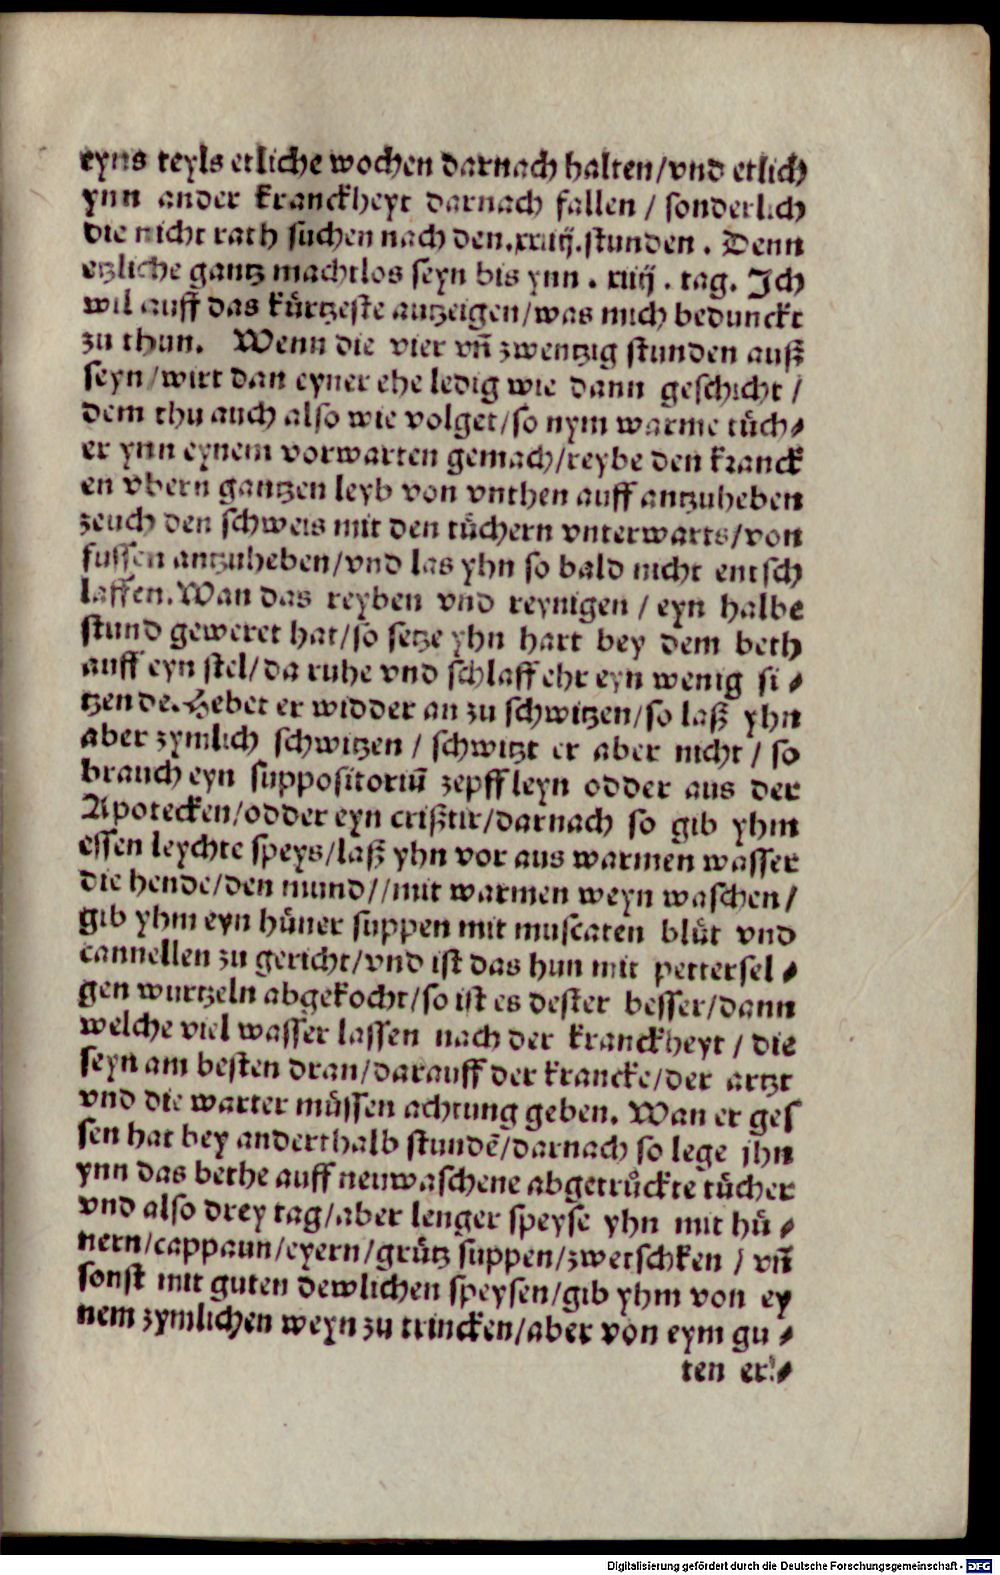 eyns teyls etliche wochen darnach halten/vnd etlich
ynn ander kranckheyt darnach fallen / sonderlich
die nicht rath suchen nach den.xxiiij.stunden . Denn
etzliche gantz machtlos seyn bis ynn . xiiij . tag. Ich
wil auff das kuͤrtzeste antzeigen/was mich bedunckt
zu thun. Wenn die vier vñ zwentzig stunden auß
seyn/wirt dan eyner ehe ledig wie dann geschicht /
dem thu auch also wie volget/so nym warme tuͤch⸗
er ynn eynem vorwarten gemach/reybe den kranck
en vbern gantzen leyb von vnthen auff antzuheben
zeuch den schweis mit den tuͤchern vnterwarts/von
fussen antzuheben/vnd las yhn so bald nicht entsch
laffen. Wan das reyben vnd reynigen / eyn halbe
stund geweret hat/so setze yhn hart bey dem beth
auff eyn stel/da ruhe vnd schlaff ehr eyn wenig si⸗
tzende. Hebet er widder an zu schwitzen/so laß yhn
aber zymlich schwitzen / schwitzt er aber nicht / so
brauch eyn suppositoriū zepffleyn odder aus der
Apotecken/odder eyn crißtir/darnach so gib yhm
essen leychte speys/laß yhn vor aus warmen wasser
die hende/den mund//mit warmen weyn waschen/
gib yhm eyn huͤner suppen mit muscaten bluͤt vnd
cannellen zu gericht/vnd ist das hun mit pettersel⸗
gen wurtzeln abgekocht/so ist es dester besser/dann
welche viel wasser lassen nach der kranckheyt / die
seyn am besten dran/darauff der krancke/der artzt
vnd die warter muͤssen achtung geben. Wan er ges
sen hat bey anderthalb stundē/darnach so lege jhn
ynn das bethe auff neuwaschene abgetruͤckte tuͤcher
vnd also drey tag/aber lenger speyse yhn mit huͤ⸗
nern/cappaun/eyern/gruͤtz suppen/zwetschken / vñ
sonst mit guten dewlichen speysen/gib yhm von ey
nem zymlichen weyn zu trincken/aber von eym gu⸗
ten er⸗
Digitalisierung gefördert durch die Deutsche Forschungsgemeinschaft - DFG